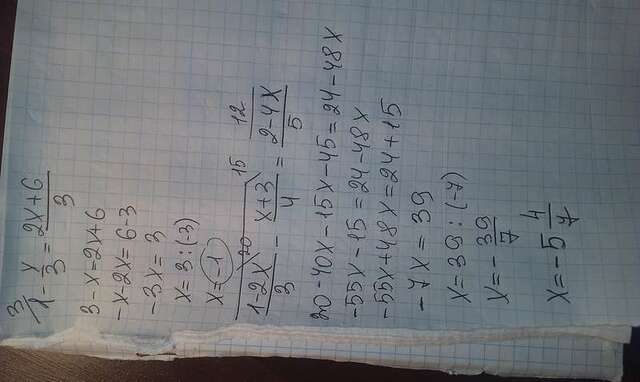 3/1 - x/3 = 2x+6/3
3-x=2x+6
-x-2x=6-3
-3x=3
x=3:(-3)
x=-1
20 15 12
1-2x/3 - x+3/4 = 2-4x/5
20-40x-15x-45=24-48x
-55x-15=24-48x
-55x+48x=24+15
-7x=39
x=39:(-7)
x=-39/7
x=-5 4/7